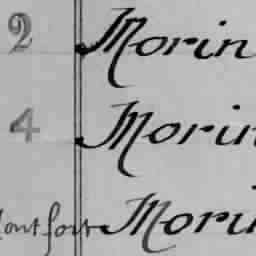 2 Morin
4 Morin
Montfort Morin